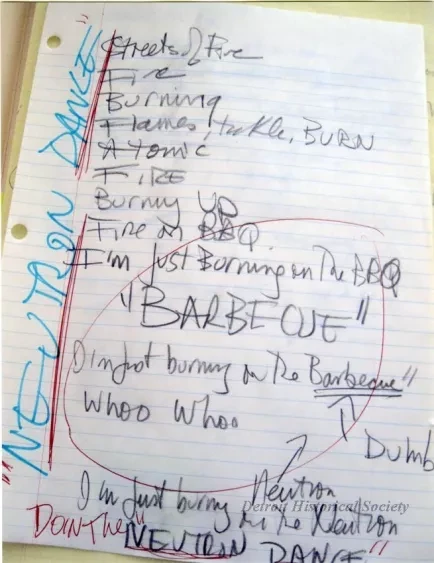 "NEUTRON DANCE"
Streets of Fire
Fire
Burning
Flames, tickle, BURN
Atomic
FIRE
Burning UP
Fire on BBQ
I'm Just Burning on The BBQ
"BARBEQUE"
I'm Just burning on The Barbeque"
Whoo Whoo
Dumb
Neutron
I'm Just burning on the Neutron
Doin The "NEUTRON DANCE"
Detroit Historical Society